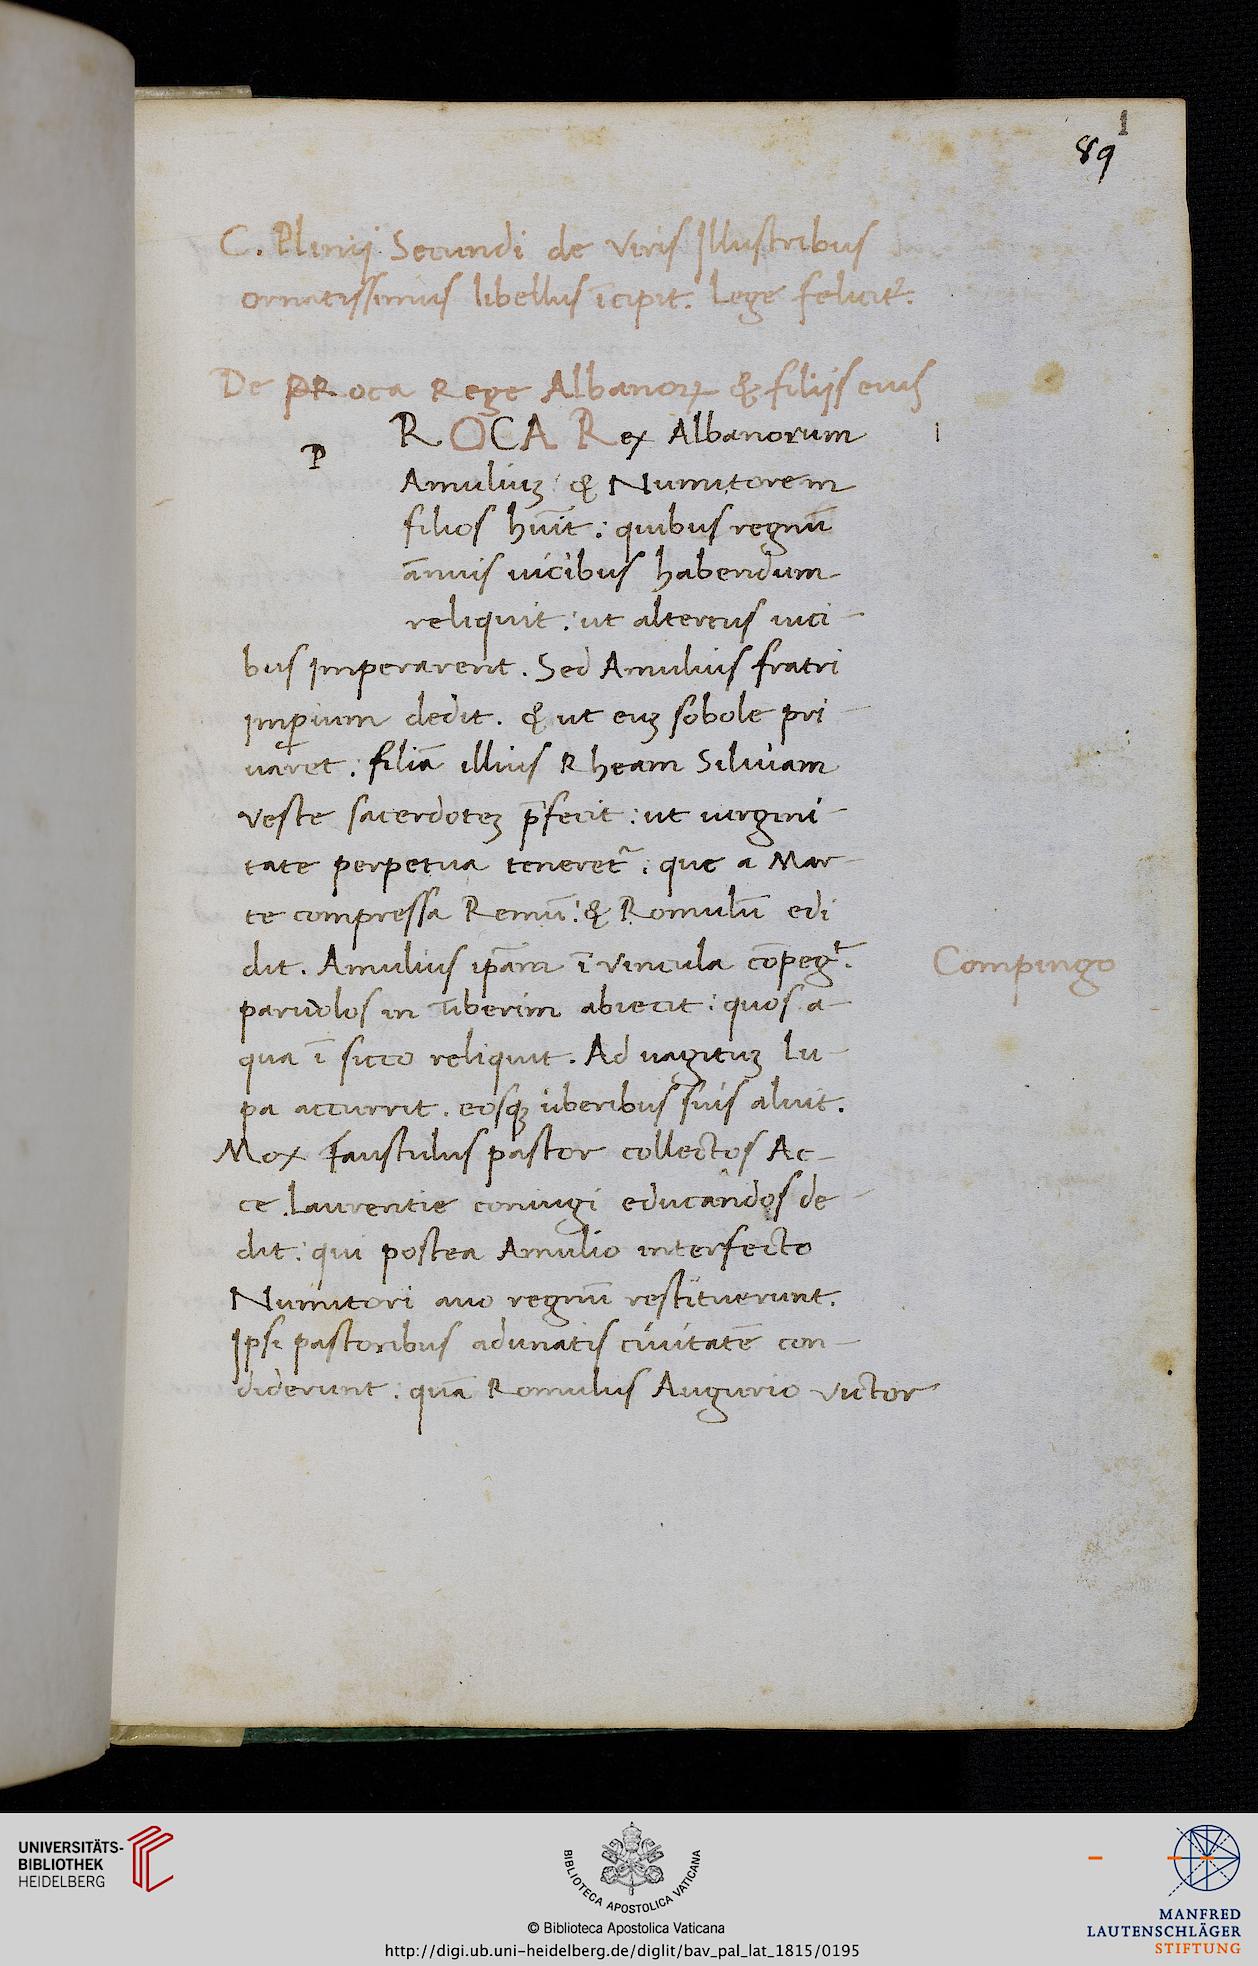 1
89
C. Plinij Secundi de Viris Illustribus
ornatissimus libellus īcipit. Lege feliciť.
De PRoca Rege Albanoꝝ & filijs eius
P
ROCA Rex Albanorum
1
Amuliuꝫ & Numitorem
filios hūit: quibus regnū
ānuis uicibus habendum
reliquit: ut alternis uici-
bus imperarent. Sed Amulius fratri
imꝑium dedit. & ut euꝫ sobole pri-
uaret: filiā illius Rheam Siluiam
Veste sacerdoteꝫ p̄fecit: ut uirgini-
tate perpetua teneret᷑: que a Mar-
te compressa Remū: & Romulū edi
dit. Amulius ip̄am ī vincula cōpeg᷑t.
Compingo
paruolos in Tiberim abiecit: quos a-
qua ī sicco reliquit. Ad uagituꝫ Lu-
pa accurrit. eosqꝫ uberibus suis aluit.
Mox faustulus pastor collectos Ac-
ce Laurentie coniugi educandos de-
dit: qui postea Amulio interfecto
Numitori auo regnū restituerunt.
Ipsi pastoribus adunatis ciuitatē con-
diderunt: quā Romulus Augurio victor
UNIVERSITÄTS-
BIBLIOTHEK
HEIDELBERG
BIBLIOTECA APOSTOLICA VATICANA
© Biblioteca Apostolica Vaticana
http://digi.ub.uni-heidelberg.de/diglit/bav_pal_lat_1815/0195
MANFRED
LAUTENSCHLÄGER
STIFTUNG